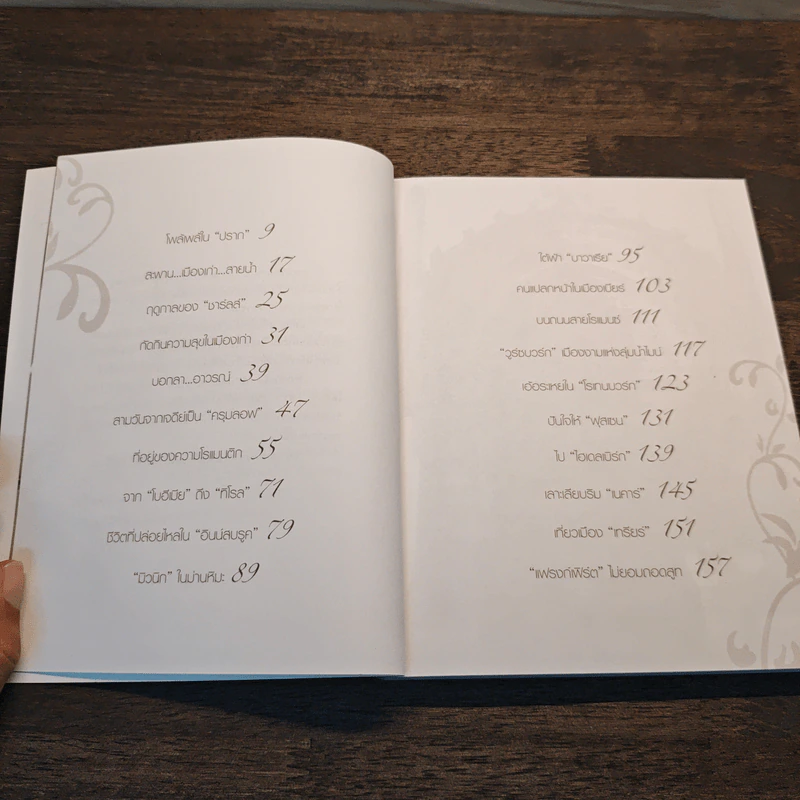 โพล้เพล้ใน “ปราก” 9
สะพาน...เมืองเก่า...สายน้ำ 17
ฤดูกาลของ “ชาร์ลส์” 25
กัดกินความสุขในเมืองเก่า 31
บอกลา...อาวรณ์ 39
สามวันจากเจดีย์เป็น “ครุมลอฟ” 47
ที่อยู่ของความโรแมนติก 55
จาก “โบฮีเมีย” ถึง “ทิโรล” 71
ชีวิตที่ปล่อยไหลใน “อินน์สบรูค” 79
“มิวนิก” ในม่านหิมะ 89
ใต้ฟ้า “บาวาเรีย” 95
คนแปลกหน้าในเมืองเบียร์ 103
บนถนนสายโรแมนซ์ 111
“วูร์ซบวร์ก” เมืองงามแห่งลุ่มน้ำไมน์ 117
เอ้อระเหยใน “โรเทนบวร์ก” 123
ปันใจให้ “ฟุสเซน” 131
ไป “ไฮเดลเบิร์ก” 139
เลาะเลียบริม “เนคาร์” 145
เที่ยวเมือง “เทรียร์” 151
“แฟรงก์เฟิร์ต” ไม่ยอมถอดสูท 157